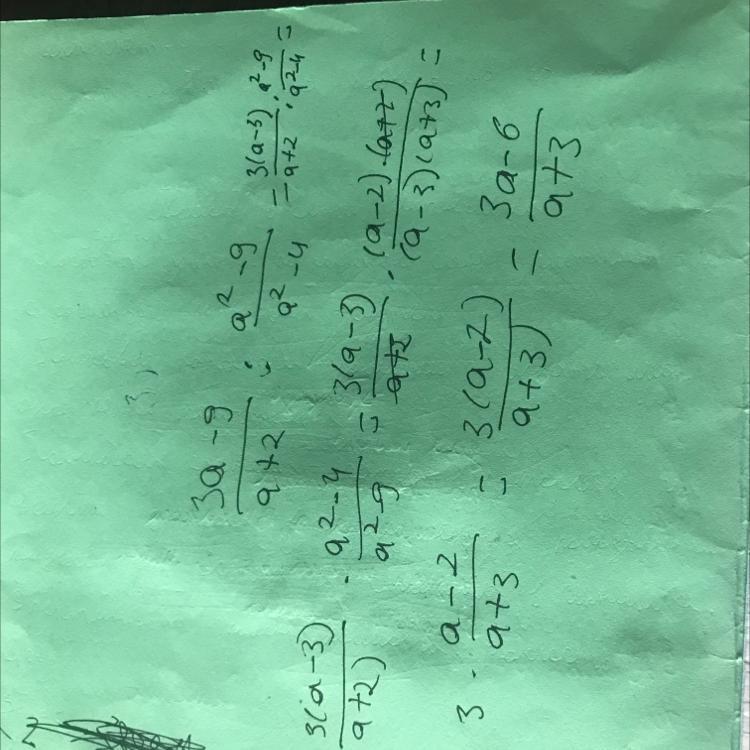 3)
3a-9/a+2 : a²-9/a²-4 = 3(a-3)/a+2 : a²-9/a²-4 =
3(a-3)/a+2) · a²-4/a²-9 = 3(a-3)/a+2 · (a-2)·(a+2)/(a-3)(a+3) =
3 · a-2/a+3 = 3(a-2)/a+3) = 3a-6/a+3